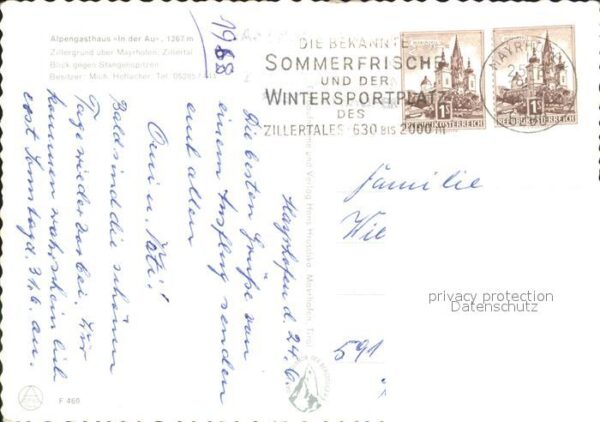 Alpengasthaus »In der Au«, 1267 m
Zillergrund über Mayrhofen, Zillertal
Blick gegen Stangenspitzen
Besitzer: Mich. Hoflacher, Tel. 05285
1968
DIE BEKANNTE
SOMMERFRISCHE
UND DER
WINTERSPORTPLATZ
DES
ZILLERTALES·630 BIS 2000 m
MAYRH
1S
1S
REPUBLIK ÖSTERREICH
REPUBLIK ÖSTERREICH
Mayrhofen d 24. 6.
Die besten Grüße von
einem Ausflug senden
euch allen
Omi u.
Bald sind die schönen
Tage wieder vorbei. Wir
kommen wahrscheinlich
erst Sonntag d. 31. 6. an.
Familie
Wie
591
und Verlag Hruschka, Mayrhofen, Tirol
privacy protection
Datenschutz
F 460